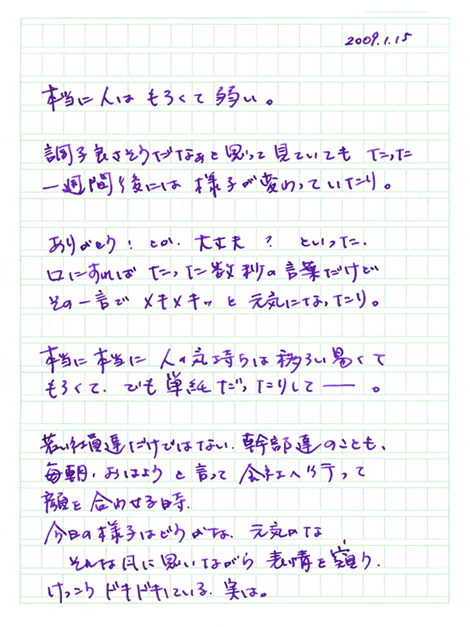 2009.1.15
本当に人は もろくて 弱い。
調子良さそうだなぁと思って見ていても たった
一週間後には 様子が変わっていたり。
ありがとう！ とか、大丈夫？ といった、
口にすれば たった数秒の言葉だけど
その一言で メキメキッと 元気になったり。
本当に本当に 人の気持ちは移ろい易くて
もろくて、でも単純だったりして ── 。
若い社員達だけではない、幹部達のことも、
毎朝、おはよう と言って 会社へ行って
顔を合わせる時、
今日の様子はどうかな、元気かな
そんな風に思いながら 表情を窺う、
けっこう ドキドキしている、実は。